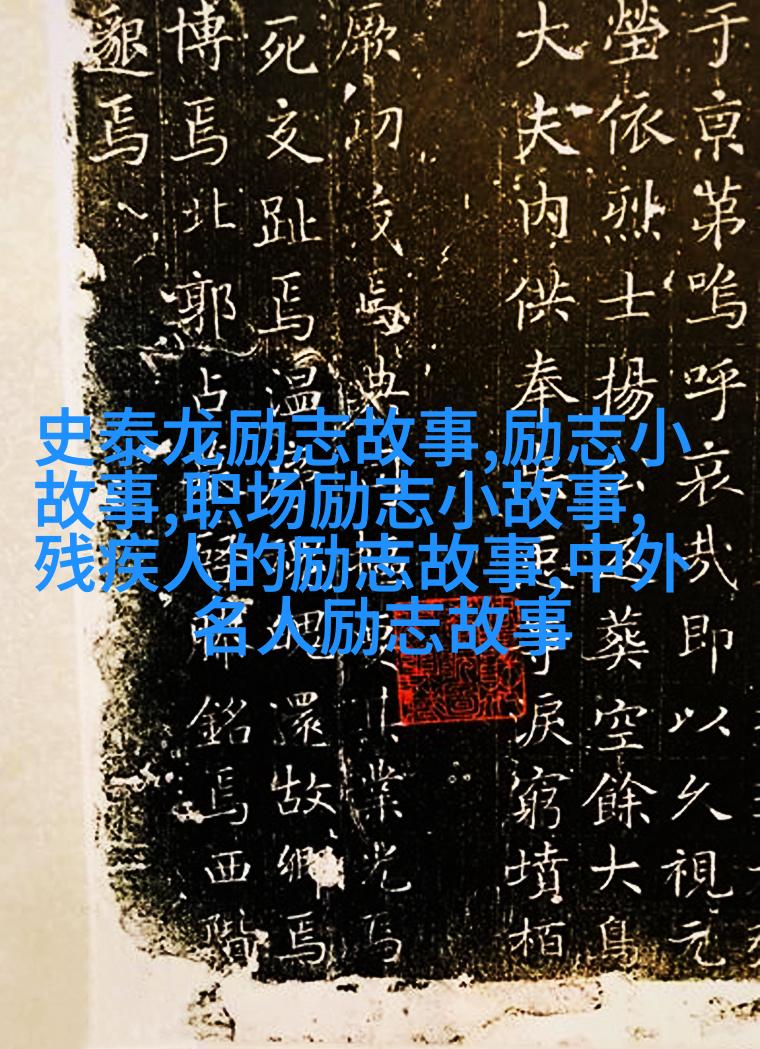 史泰龙励志故事,励志小
故事,职场励志小故事,
残疾人的励志故事,中外
名人励志故事
于京第嗚呼哀哉即以久視元
塋依烈士揚葬空餘大鳥
大夫内供奉臣守淚窮墳栢
厥初焉典業光焉
死交趾焉温還故鄉焉
博焉北郭占銘焉西階
邈焉